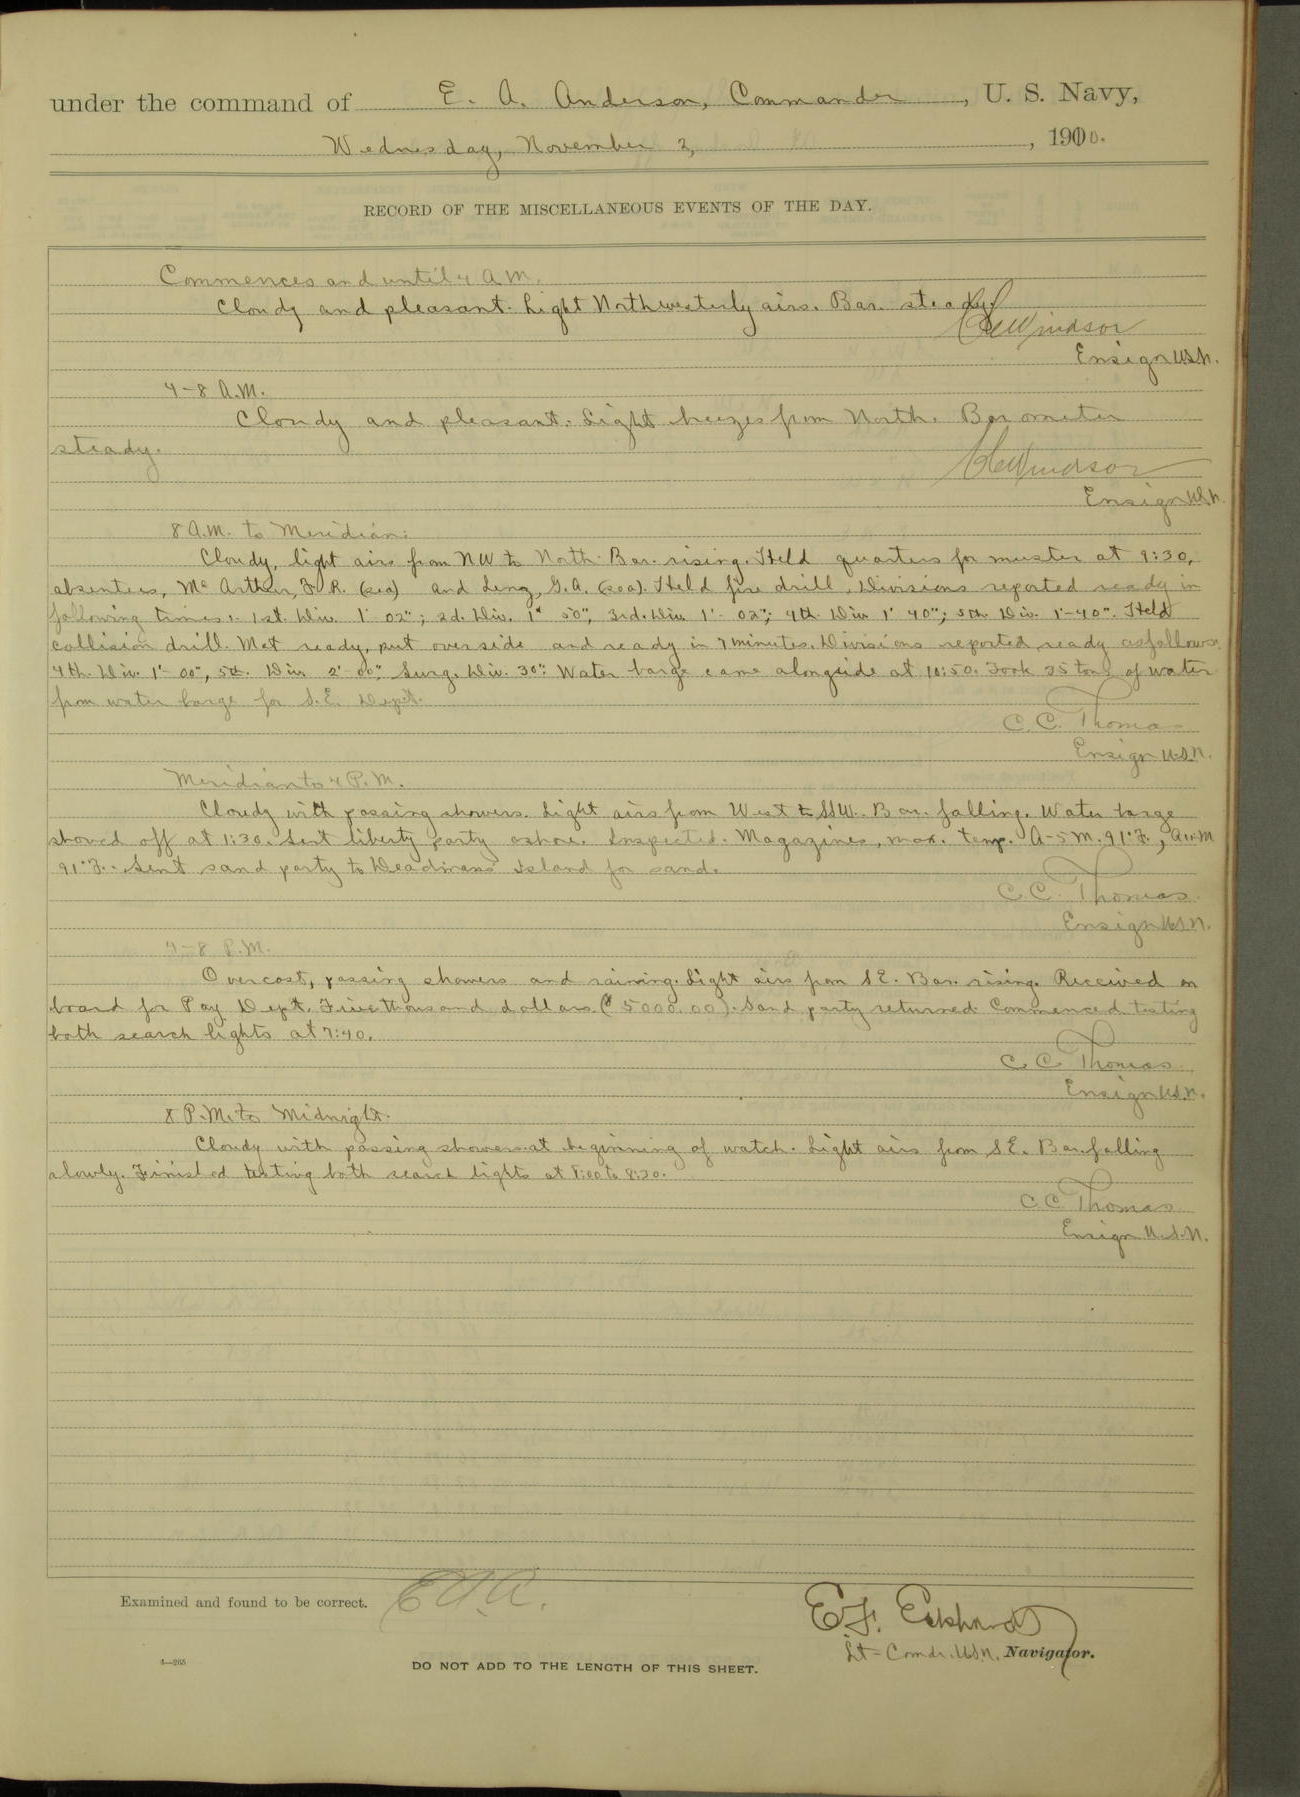 under the command of E. A. Anderson, Commander, U. S. Navy,
Wednesday, November 2, 1910.
RECORD OF THE MISCELLANEOUS EVENTS OF THE DAY.
Commences and until 4 A.M.
Cloudy and pleasant. Light Northwesterly airs. Bar. steady.
Windsor
Ensign U.S.N.
4-8 A.M.
Cloudy and pleasant. Light breezes from North. Barometer
steady.
Windsor
Ensign U.S.N.
8 A.M. to Meridian:
Cloudy, light airs from NW to North. Bar. rising. Held quarters for muster at 9:30,
absentees, McArthur, F.R. (sea) and Leng, G.A. (sea). Held fire drill. Divisions reported ready in
following times:- 1st. Div. 1'-02"; 2d. Div. 1'-50"; 3rd. Div. 1'-02"; 4th Div. 1'-40"; 5th Div. 1'-40". Held
collision drill. Mat ready, put over side and ready in 7 minutes. Divisions reported ready as follows:
4th. Div. 1'-00", 5th. Div. 2'-00" Surg. Div. 30". Water barge came alongside at 10:50. Took 35 tons of water
from water barge for S.E. Dept.
C. C. Thomas
Ensign U.S.N.
Meridian to 4 P.M.
Cloudy with passing showers. Light airs from West to SSW. Bar. falling. Water barge
shoved off at 1:30. Sent liberty party ashore. Inspected Magazines, max. temp. A-5M. 91°F.,
91°F. Sent sand party to Deadmans Island for sand.
C. C. Thomas
Ensign U.S.N.
4-8 P.M.
Overcast, passing showers and raining. Light airs from SE. Bar. rising. Received on
board for Pay Dept. Five thousand dollars ($5000.00). Sand party returned. Commenced testing
both search lights at 7:40.
C C Thomas
Ensign U.S.N.
8 P.M. to Midnight.
Cloudy with passing showers at beginning of watch. Light airs from SE. Bar. falling
slowly. Finished testing both search lights at 8:00 to 8:30.
C C Thomas
Ensign U.S.N.
Examined and found to be correct. E.A.A.
E.F. Eckhardt
Lt-Comdr. U.S.N. Navigator.
4—265
DO NOT ADD TO THE LENGTH OF THIS SHEET.